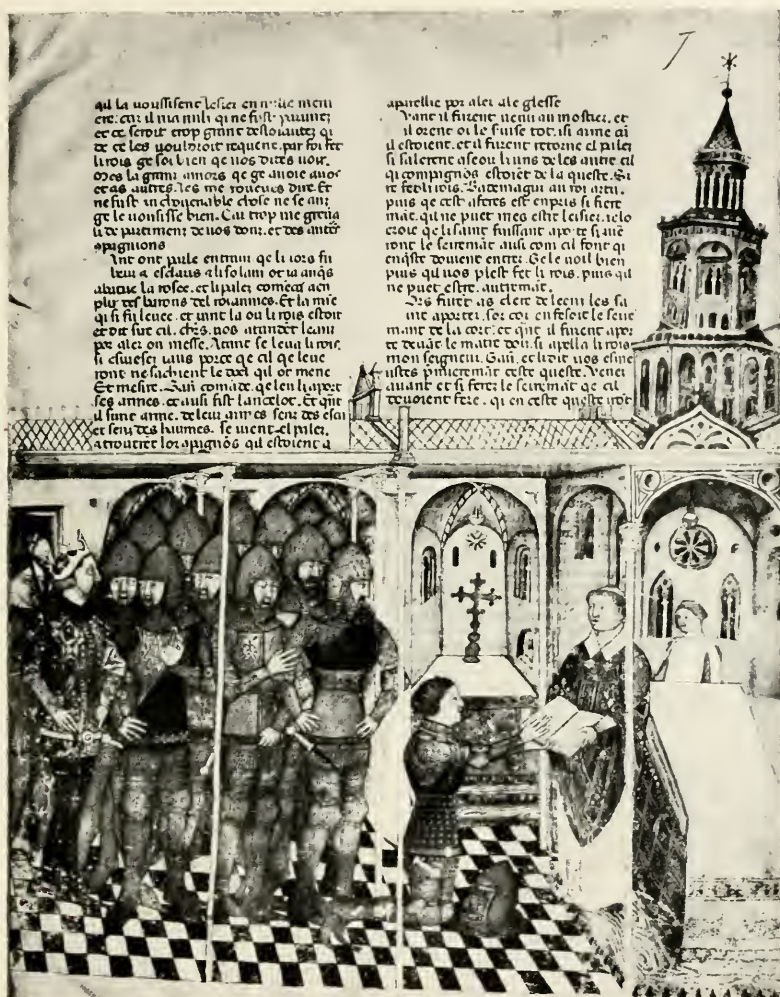 qil la uoussisent lesier en nule meni
ere. car il ni a nuli qi ne fust
et ce seroit trop grant desloiautez qi
de ce les uouldroit requerir. par foi fet
li rois ge sai bien que uos dites uoir.
mes la grant amors qe ge auoie auos
et as autres. les me dire. Et
ne fust si chose ne se
ge le uousisse bien. Car trop me greua
li de partiment de uos dou. et des autres
9pagnions
Ant ont parle entraus qe li iors fu
leuez esclaris li solauz ot ia auqs
abatue la rosee. et li pales comeca aen
plir des barons del roiaumes. Et la
qi si fu leuee. et uint la ou li rois estoit
et dit sire cil. chrs. uos atandet leauz
por aler oir messe. Atant se leua li rois.
si ses iauz porce qe cil qe leue
ront ne sachient le doel qil ot mene
Et mesire. Gaū comāde. qe len li aport
ses armes. et ausi fist lancelot. Et qāt
il sunt arme. de leur armes senz des escu
et senz des haumes. se uient el pales.
a trouerēt lor 9pagnōs qil estoient a
aparellie por aler a le glesse
Vant il furent uenu au mostier. et
il orent oi le seruise tot. isi arme cū
il estoient. et il furent retorne el pales
si salerent aseoir li uns de les autre cil
qi compagnōs estoiēt de la queste. Si
re fet li rois. Bademagu au roi artu.
puis qe cest aferes est enpris si fiere
māt. qil ne puet mes estre lesier. ie lo
croie qe li saint fuissant aporte si
ront le seiremāt ausi com cil font qi
en qste doiuent entrer. Ge le uoil bien
puis qil uos plest fet li rois. puis qil
ne puet estre. autremāt.
Ors firēt as clerc de lecni les sa
inz aporter. sor coi en fesoit le seire
mant de la cort. et qāt il furent apor
te deuāt le maitre dois. si apella li rois
mon seigneur. Gaū. et li dit uos esme
ustes primeremāt ceste queste. Venez
auant et si feres le seiremāt qe cil
deuoient fere. qi en ceste queste irōt